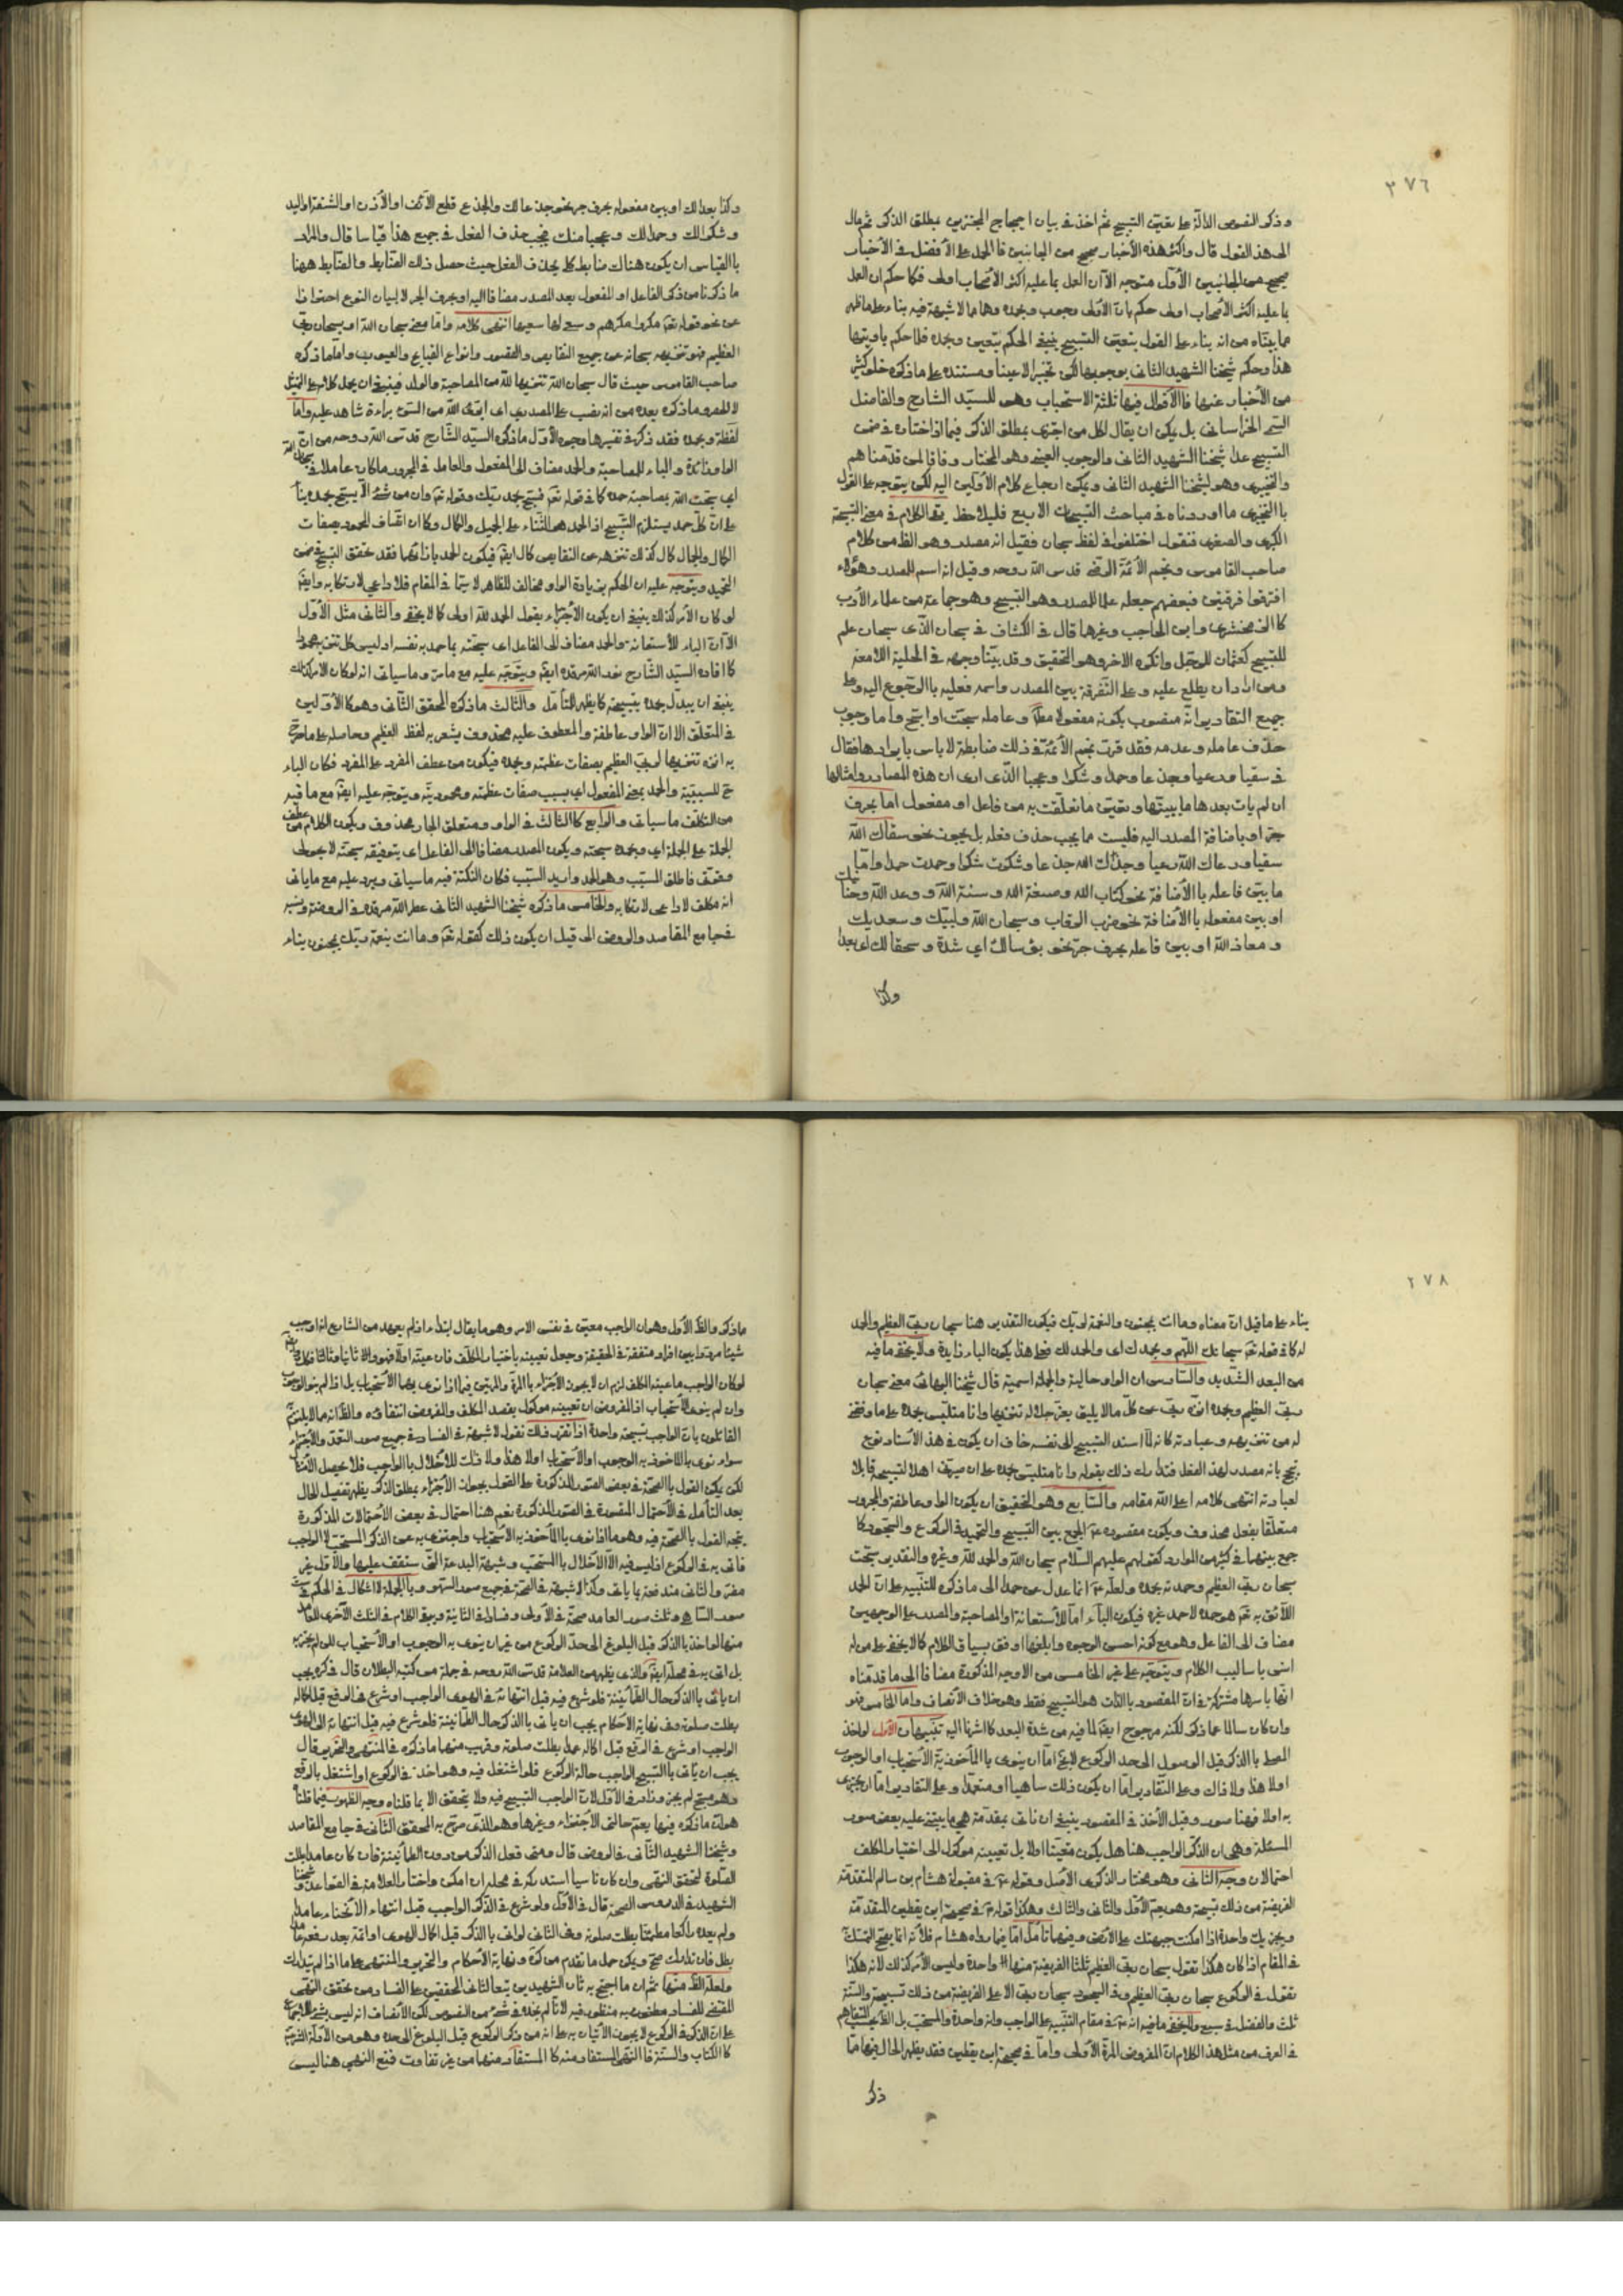 ٣٧٦
وذكر النصوص الدالة على تعيين التسبيح ثم اخذ في بيان احتجاج المجتزين بمطلق الذكر ثم مال
الى هذا القول قال واكثر هذه الأخبار صحيح من الجانبين فالحمل على الأفضل في الأخبار
صحيح من الجانبين الأول متوجه الا ان العمل بما عليه اكثر الأصحاب اولى فكما حكم ان العمل
بما عليه اكثر الأصحاب اولى حكم بان الأولى وجوب وبحمده وهما مما لا شبهة فيه بناء على ما ظهر
مما بيناه من انه بناء على القول بتعيين التسبيح ينبغي الحكم بتعيين وبحمده فلا حكم باولويتها
هذا وحكم شيخنا الشهيد الثاني بوجوبها لكن تخييرا لا عينا ومستنده على ما ذكره خلو كثير
من الأخبار عنها فالأقوال فيها ثلثة الاستحباب وهو للسيد الشارح والفاضل
السمي الخراساني بل يمكن ان يقال لكل من اجتزى بمطلق الذكر فيما اذا اختاره في ضمن
التسبيح عدا شيخنا الشهيد الثاني والوجوب العيني وهو المختار وفاقا لمن قدمناهم
والتخييري وهو لشيخنا الشهيد الثاني ويمكن ارجاع كلام الأولين اليه لكن يتوجه على القول
بالتخييري ما اوردناه في مباحث التسبيحات الاربع فليلاحظ بقي الكلام في معنى التسبيحة
الكبرى والصغرى فنقول اختلفوا في لفظ سبحان فقيل انه مصدر وهو الظ من كلام
صاحب القاموس ونجم الأئمة الرضي قدس الله روحه وقيل انه اسم للمصدر وهؤلاء
افترقوا فرقتين فبعضهم جعله علما للمصدر وهو التسبيح وهو جماعة من علماء الأدب
كالزمخشري وابن الحاجب وغيرها قال في الكشاف في سبحان الذي سبحان علم
للتسبيح كعثمان للرجل وانكره الاخر وهو التحقيق وقد بينا وجهه في الحلية اللامعة
ومن اراد ان يطلع عليه وعلى التفرقة بين المصدر واسمه فعليه بالرجوع اليه وعلى
جميع التقادير انه منصوب بكونه مفعولا مط وعامله سبحت او اسبح واما وجوب
حذف عامله وعدمه فقد قرر نجم الأئمة في ذلك ضابطة لا باس بايرادها فقال
في سقيا ورعيا وجدعا وحمدا وشكرا وعجبا الذي ارى ان هذه المصادر وامثالها
ان لم يات بعدها ما يبينها ويعين ما تعلقت به من فاعل او مفعول اما بحرف
جر او باضافة المصدر اليه فليست مما يجب حذف فعله بل يجوز نحو سقاك الله
سقيا ورعاك الله رعيا وجدك الله جدعا وشكرت شكرا وحمدت حمدا واما
ما يبين فاعله بالأضافة نحو كتاب الله وصبغة الله وسنة الله ووعد الله وحنانيك
او بين مفعوله بالأضافة نحو ضرب الرقاب وسبحان الله ولبيك وسعديك
ومعاذ الله او بين فاعله بحرف جر نحو بؤسا لك اي شدة وسحقا لك اي بعدا
وكذا
وكذا بعدا لك او بين مفعوله بحرف جر نحو جدعا لك والجدع قطع الأنف او الأذن او الشفة او اليد
وشكرا لك وحمدا لك وعجبا منك فيجب حذف الفعل في جميع هذا قياسا قال والمراد
بالقياس ان يكون هناك ضابط كلي يحذف الفعل حيث حصل ذلك الضابط والضابط ههنا
ما ذكرنا من ذكر الفاعل او المفعول بعد المصدر مضافا اليه او بحرف الجر لا لبيان النوع احترازا
عن نحو قوله تعم مكروا مكرهم وسعى لها سعيها انتهى كلامه واما معنى سبحان الله او سبحان ربي
العظيم فهو تنزيهه سبحانه عن جميع النقايص والقصور وانواع القبايح والعيوب واما ما ذكره
صاحب القاموس حيث قال سبحان الله تنزيها لله من الصاحبة والولد فينبغي ان يحمل كلامه على التمثيل
لا الحصر وما ذكره بعده من انه نصب على المصدر اي ابرئ الله من السوء براءة شاهد عليه واما
لفظة وبحمده فقد ذكر في تفسيرها وجوه الأول ما ذكره السيد الشارح قدس الله روحه من ان
الواو زائدة والباء للمصاحبة والحمد مضاف الى المفعول والعامل في المجرور ما كان عاملا في سبحان الله
اي سبحت الله بمصاحبة حمده كما في قوله تعم فسبح بحمد ربك وقوله تعم وان من شيء الا يسبح بحمده بناء
على ان كل حمد يستلزم التسبيح اذ الحمد هو الثناء على الجميل والكمال وكما ان اتصاف المحمود بصفات
الكمال والجمال كمال كذلك تنزهه عن النقايص كمال ايضا فيكون الحمد باذائهما فقد تحقق التسبيح في ضمن
التحميد ويتوجه عليه ان الحكم بزيادة الواو مخالف للظاهر لا سيما في المقام فلا داعي لارتكابه وايضا
لو كان الأمر كذلك ينبغي ان يكون الأجتزاء بقول الحمد لله اولى كما لا يخفى والثاني مثل الأول
الا ان الباء للأستعانة والحمد مضاف الى الفاعل اي سبحته بما حمد به نفسه اوليس كل تنزيه محمودا
كما افاده السيد الشارح نور الله مرقده ايضا ويتوجه عليه مع ما مر وما سياتي انه لو كان الامر كذلك
ينبغي ان يبدل بحمده بتسبيحه كما يظهر للتأمل والثالث ما ذكره المحقق الثاني وهو كالأولين
في المتعلق الا ان الواو عاطفة والمعطوف عليه محذوف يشعر به لفظ العظيم وحاصله على ما صرح
به انزه تنزيها لربي العظيم بصفات عظمته وبحمده فيكون من عطف المفرد على المفرد فكان الباء
ح للسببية والحمد بمعنى المفعول اي بسبب صفات عظمته ومحموديته ويتوجه عليه ايضا مع ما فيه
من التكلف ما سياتي والرابع كالثالث في الواو ومتعلق الجار محذوف ويكون الكلام من عطف
الجملة على الجملة اي وبحمده سبحته ويكون المصدر مضافا الى الفاعل اي بتوفيقه سبحته لا بحولي
وقوتي فاطلق المسبب وهو الحمد واريد السبب فكان النكتة فيه ما سياتي ويرد عليه مع ما ياتي
انه تكلف لا داعي لارتكابه والخامس ما ذكره شيخنا الشهيد الثاني عطر الله مرقده في الروضة ونسبه
في جامع المقاصد والروض الى قيل ان يكون ذلك كقوله تعم وما انت بنعمة ربك بمجنون بناء
٢٧٨
بناء على ما قيل ان معناه وما انت بمجنون والنعمة لربك فيكون التقدير هنا سبحان ربي العظيم والحمد
له كما في قوله تعم سبحانك اللهم وبحمدك اي والحمد لك فعلى هذا يكون الباء زايدة ولا يخفى ما فيه
من البعد الشديد والسادس ان الواو حالية والجملة اسمية قال شيخنا البهائي معنى سبحان
ربي العظيم وبحمده انزه ربي عن كل ما لا يليق بعز جلاله تنزيها وانا متلبس بحمده على ما وفقني
له من تنزيهه وعبادته كانه لما اسند التسبيح الى نفسه خاف ان يكون في هذا الأسناد نوع
تبجح بانه مصدر لهذا الفعل فتدارك ذلك بقوله وانا متلبس بحمده على ان صيرني اهلا لتسبيحه قابلا
لعبادته انتهى كلامه اعلى الله مقامه والسابع وهو التحقيق ان يكون الواو عاطفة والمجرور
متعلقا بفعل محذوف ويكون مقصوده ع الجمع بين التسبيح والتحميد في الركوع والسجود كما
جمع بينهما في كثير من الموارد كقولهم عليهم السلام سبحان الله والحمد لله وغيره والتقدير سبحت
سبحان ربي العظيم وحمدته بحمده ولعله ع انما عدل من حمدا الى ما ذكره للتنبيه على ان الحمد
اللائق به تعم هو حمده لا حمد غيره فيكون الباء اما للأستعانة او المصاحبة والمصدر على الوجهين
مضاف الى الفاعل وهو مع كونه احسن الوجوه وابلغها اوفق بسياق الكلام كما لا يخفى على من له
انس باساليب الكلام ويتوجه على غير الخامس من الاوجه المذكورة مضافا الى ما قدمناه
انها باسرها مشتركة في ان المقصود بالذات هو التسبيح فقط وهو خلاف الأنصاف واما الخامس فهو
وان كان سالما عما ذكر لكنه مرجوح ايضا لما فيه من شدة البعد كما اشرنا اليه تنبيهات الأول لو اخذ
المصلي بالذكر قبل الوصول الى حد الركوع فلا يخ اما ان ينوي بالمأخوذ به الأستحباب او الوجوب
او لا هذا ولا ذاك وعلى التقادير اما ان يكون ذلك ساهيا او متعمدا وعلى التقادير اما ان يجتزي
به او لا فهنا صور وقبل الأخذ في المقصود ينبغي ان ناتي بمقدمة هي ما يبتني عليه بعض صور
المسئلة وهي ان الذكر الواجب هنا هل يكون متعينا اولا بل تعيينه موكول الى اختيار المكلف
احتمالان وجه الثاني وهو مختار الذكرى الأصل وقوله ع في مقبولة هشام بن سالم المتقدمة
الفريضة من ذلك تسبيحة وهو يعم الأول والثاني والثالث وهكذا قوله ع في صحيحة ابن يقطين المتقدمة
ويجزيك واحدة اذا امكنت جبهتك على الأرض وفيهما تأمل اما فيما رواه هشام فلأنه انما يصح التمسك
في المقام اذا كان هكذا تقول سبحان ربي العظيم ثلثا الفريضة منها واحدة وليس الأمر كذلك لانه هكذا
تقول في الركوع سبحان ربي العظيم وفي السجود سبحان ربي الأعلى الفريضة من ذلك تسبيحة والسنة
ثلث والفضل في سبع ولا يخفى ما فيه انه ع في مقام التنبيه على الواجب وانه واحدة والمستحب بل الظ بحسب التفاهم
في العرف من مثل هذا الكلام ان المفروض المرة الأولى واما في صحيحة ابن يقطين فقد يظهر الحال فيها مما
ذكر
ماذكر والظ الأول وهو ان الواجب معين في نفس الامر وهو ما يقال ابتداء اذ لم يعهد من الشارع اذا اوجب
شيئا مرددا بين افراد متفقة في الحقيقة وجعل تعيينه باختيار المكلف فان عينه اولا فهو والا ثانيا وثالثا فكل
لو كان الواجب ما عينه المكلف لزم ان لا يجوز الأجتزاء بالمرة والمرتين فيما اذا نوى بها الأستحباب بل اذا لم ينو الوجوب
وان لم ينو الأستحباب اذ المفروض ان تعيينه موكول بقصد المكلف والمفروض انتفاؤه والظ انه مما لا يلتزم
القائلون بان الواجب تسبيحة واحدة اذا تقرر ذلك نقول لا شبهة في الفساد في جميع صور التعمد والأجتزاء
سواء نوى بالمأخوذ به الوجوب او الأستحباب او لا هذا ولا ذلك للأخلال بالواجب فلا يحصل الأمتثال
لكن يكون القول بالصحة في بعض الصور المذكورة على القول بجواز الأجتزاء بمطلق الذكر يظهر تفصيل الحال
بعد التأمل في الأحتمال المقصورة في الصور المذكورة نعم هنا احتمال في بعض الأحتمالات المذكورة
يتجه القول بالصحة فيه وهو ما اذا نوى بالمأخوذ به الأستحباب واجتزى به عن الذكر المستحب لا الواجب
فاتى به في الركوع اذ ليس فيه الا الأخلال بالمستحب وشبهة البدعة التي ستقف عليها والأول غير
مضر والثاني مندفعة بما ياتي وكذا لا شبهة في الصحة في جميع صور السهو وبالجملة لا اشكال في الحكم في ثلث
صور الساهي وثلث صور العامد صحة في الأولى وفسادا في الثانية وبقي الكلام في الثلث الأخرى للعامد
منها لو اخذ بالذكر قبل البلوغ الى حد الركوع من غير ان ينوي به الوجوب او الأستحباب لكن لم يجتز به
بل اتى به في محله ايضا والذي يظهر من العلامة قدس الله روحه في جملة من كتبه البطلان قال في كره يجب
ان ياتي بالذكر حال الطمأنينة فلو شرع فيه قبل انتهائه في الهوى الواجب او شرع في الرفع قبل اكماله
بطلت صلوته وفي نهاية الأحكام يجب ان ياتي بالذكر حال الطمانينة فلو شرع فيه قبل انتهائه الى الهوى
الواجب او شرع في الرفع قبل اكماله عمدا بطلت صلوته وقريب منهما ما ذكره في المنتهى والتحرير قال
يجب ان ياتي بالتسبيح الواجب حالة الركوع فلو اشتغل فيه وهو اخذ في الركوع او اشتغل بالرفع
وهو مسبح لم يجز وزاد في الأول لان الواجب التسبيح فيه ولا يتحقق الا بما قلناه وجه الظهور فيما قلناه
هو ان ما ذكره فيها يعم حالتي الأجتزاء وغيرها وهو الذي صرح به المحقق الثاني في جامع المقاصد
وشيخنا الشهيد الثاني في الروض قال ومتى فعل الذكر من دون الطمأنينة فان كان عامدا بطلت
الصلوة لتحقق النهي وان كان ناسيا استدركه في محله ان امكن واختار العلامة في القواعد وشيخنا
الشهيد في الدروس الصحة قال في الأول ولو شرع في الذكر الواجب قبل انتهاء الأنحناء عامدا
ولم يعده راكعا مطمئنا بطلت صلوته وفي الثاني لو اتى بالذكر قبل اكمال الهوى او اتمه بعد رفعه عامدا
بطل فان تدارك صح ويمكن حمل ما تقدم من كره ونهاية الأحكام والتحرير والمنتهى على ما اذا لم يتدارك
ولعله الظ منها ثم ان ما احتج به ثاني الشهيدين تبعا لثاني المحققين على الفساد من تحقق النهي
المقتضي للفساد مطعون به منظور فيه لانا لم نجد في شيء من النصوص لكن الأنصاف انه ليس بشيء للأجماع
على ان الذكر في الركوع لا يجوز الأتيان به على انه من ذكر الركوع قبل البلوغ الى حده وهو من الأدلة الشرعية
كالكتاب والسنة فالنهي المستفاد منه كالمستفاد منهما من غير تفاوت فمنع النهي هنا ليس